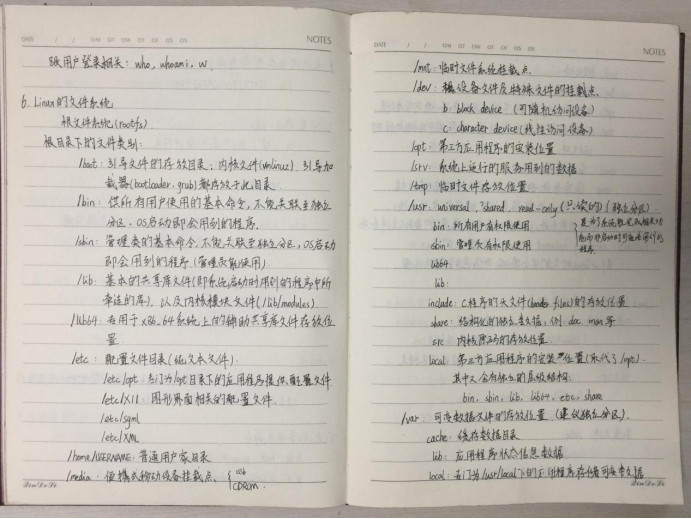 DATE / / NOTES
跟用户登录相关：who, whoami, w.
6. Linux的文件系统
根文件系统(rootfs)
根目录下的文件类别：
/boot：引导文件的存放目录，内核文件(vmlinuz)、引导加
载器(bootloader, grub)都存放于此目录.
/bin：供所有用户使用的基本命令，不能关联至独立
分区，OS启动即会用到的程序.
/sbin：管理类的基本命令，不能关联至独立分区，OS启动
即会用到的程序.(管理员能使用)
/lib：基本的共享库文件(即系统启动时用到的程序中所
牵连的库)，以及内核模块文件(/lib/modules)
/lib64：专用于x86_64系统上的辅助共享库文件存放位
置.
/etc：配置文件目录(纯文本文件).
/etc/opt：专门为/opt目录下的应用程序提供配置文件
/etc/X11：图形界面相关的配置文件.
/etc/sgml
/etc/xml
/home/USERNAME：普通用户家目录
/media：便携式移动设备挂载点. { usb
CDROM.
DATE / / NOTES
/mnt：临时文件系统挂载点.
/dev：设备文件及特殊文件的挂载点.
b: block device (可随机访问设备)
c: character device (线性访问设备)
/opt：第三方应用程序的安装位置
/srv：系统上运行的服务用到的数据
/tmp：临时文件存放位置
/usr：universal, shared, read-only (只读的) (独立分区)
bin：所有用户有权限使用
sbin：管理员有权限使用
lib64:
lib:
include：C程序的头文件(header files)的存放位置
share：结构化的独立类数据，例：doc, man等
src：内核源码的存放位置.
local：第三方应用程序的安装位置(取代了/opt).
其中又会有独立的层级结构:
bin, sbin, lib, lib64, etc, share
/var：可变数据文件的存放位置 (建议独立分区).
cache：缓存数据目录
lib：应用程序状态信息数据
local：专门为/usr/local下的应用程序存储可变类数据